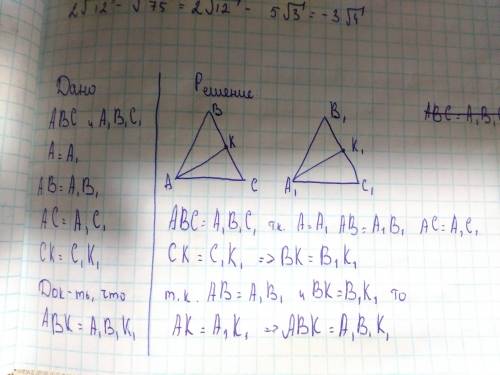 2√12 - √75 = 2√12 - 5√3 =
Дано
Решение
ABC и A₁B₁C₁
A = A₁
AB = A₁B₁
AC = A₁C₁
CK = C₁K₁
Док-ть, что
ABK = A₁B₁K₁
B
K
A
C
B₁
K₁
A₁
C₁
ABC = A₁B₁C₁ т.к. A = A₁ AB = A₁B₁ AC = A₁C₁
CK = C₁K₁ => BK = B₁K₁
т.к. AB = A₁B₁ и BK = B₁K₁ то
AK = A₁K₁ => ABK = A₁B₁K₁